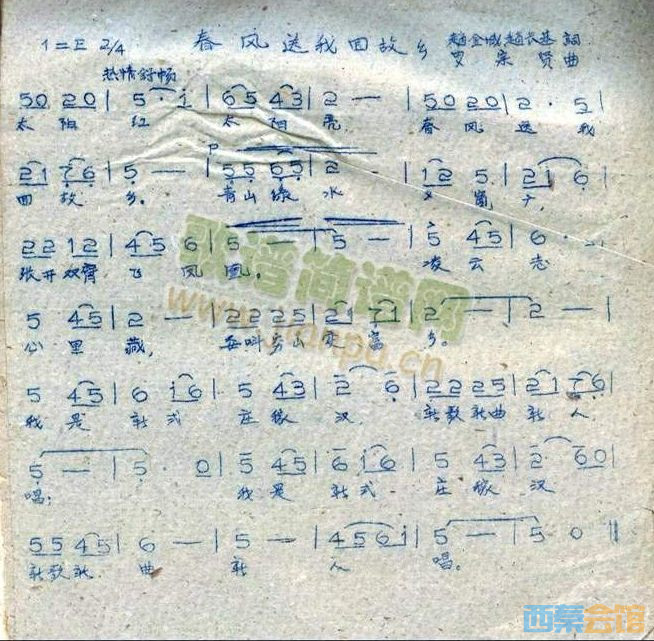 1=E 2/4 春风送我回故乡 赵金城 赵长基 詞
热情舒畅 罗宗贤曲
50 20 | 5 · i | 65 43 | 2 — | 50 20 | 2 · 5 |
太阳 红 太阳 亮, 春风 送 我
21 76 | 5 · — | 55 55 | 2 — | 12 5 | 21 6 |
回故 乡。 青山绿 水
22 12 | 45 6 | 5 — | 5 — | 5 45 | 6 · 2 |
张开双臂 飞 凤凰。 凌云志
5 45 | 2 — | 22 25 | 21 71 | 2 — | 2 — |
心里藏, 要叫穷山变富 乡。
5 45 | 6 i6 | 5 43 | 2 6 | 22 25 | 21 76 |
我是 新式 庄稼 汉, 新歌新曲 新人
5 — | 5 · 0 | 5 45 | 6 i6 | 5 43 | 2 60 |
唱; 我是 新式 庄稼 汉
55 45 | 6 — | 5 — | 45 6i | 5 — | 5 0 ‖
新歌新 曲 新 人 唱。
歌谱简谱网
www.jianpu.cn
西慕会馆